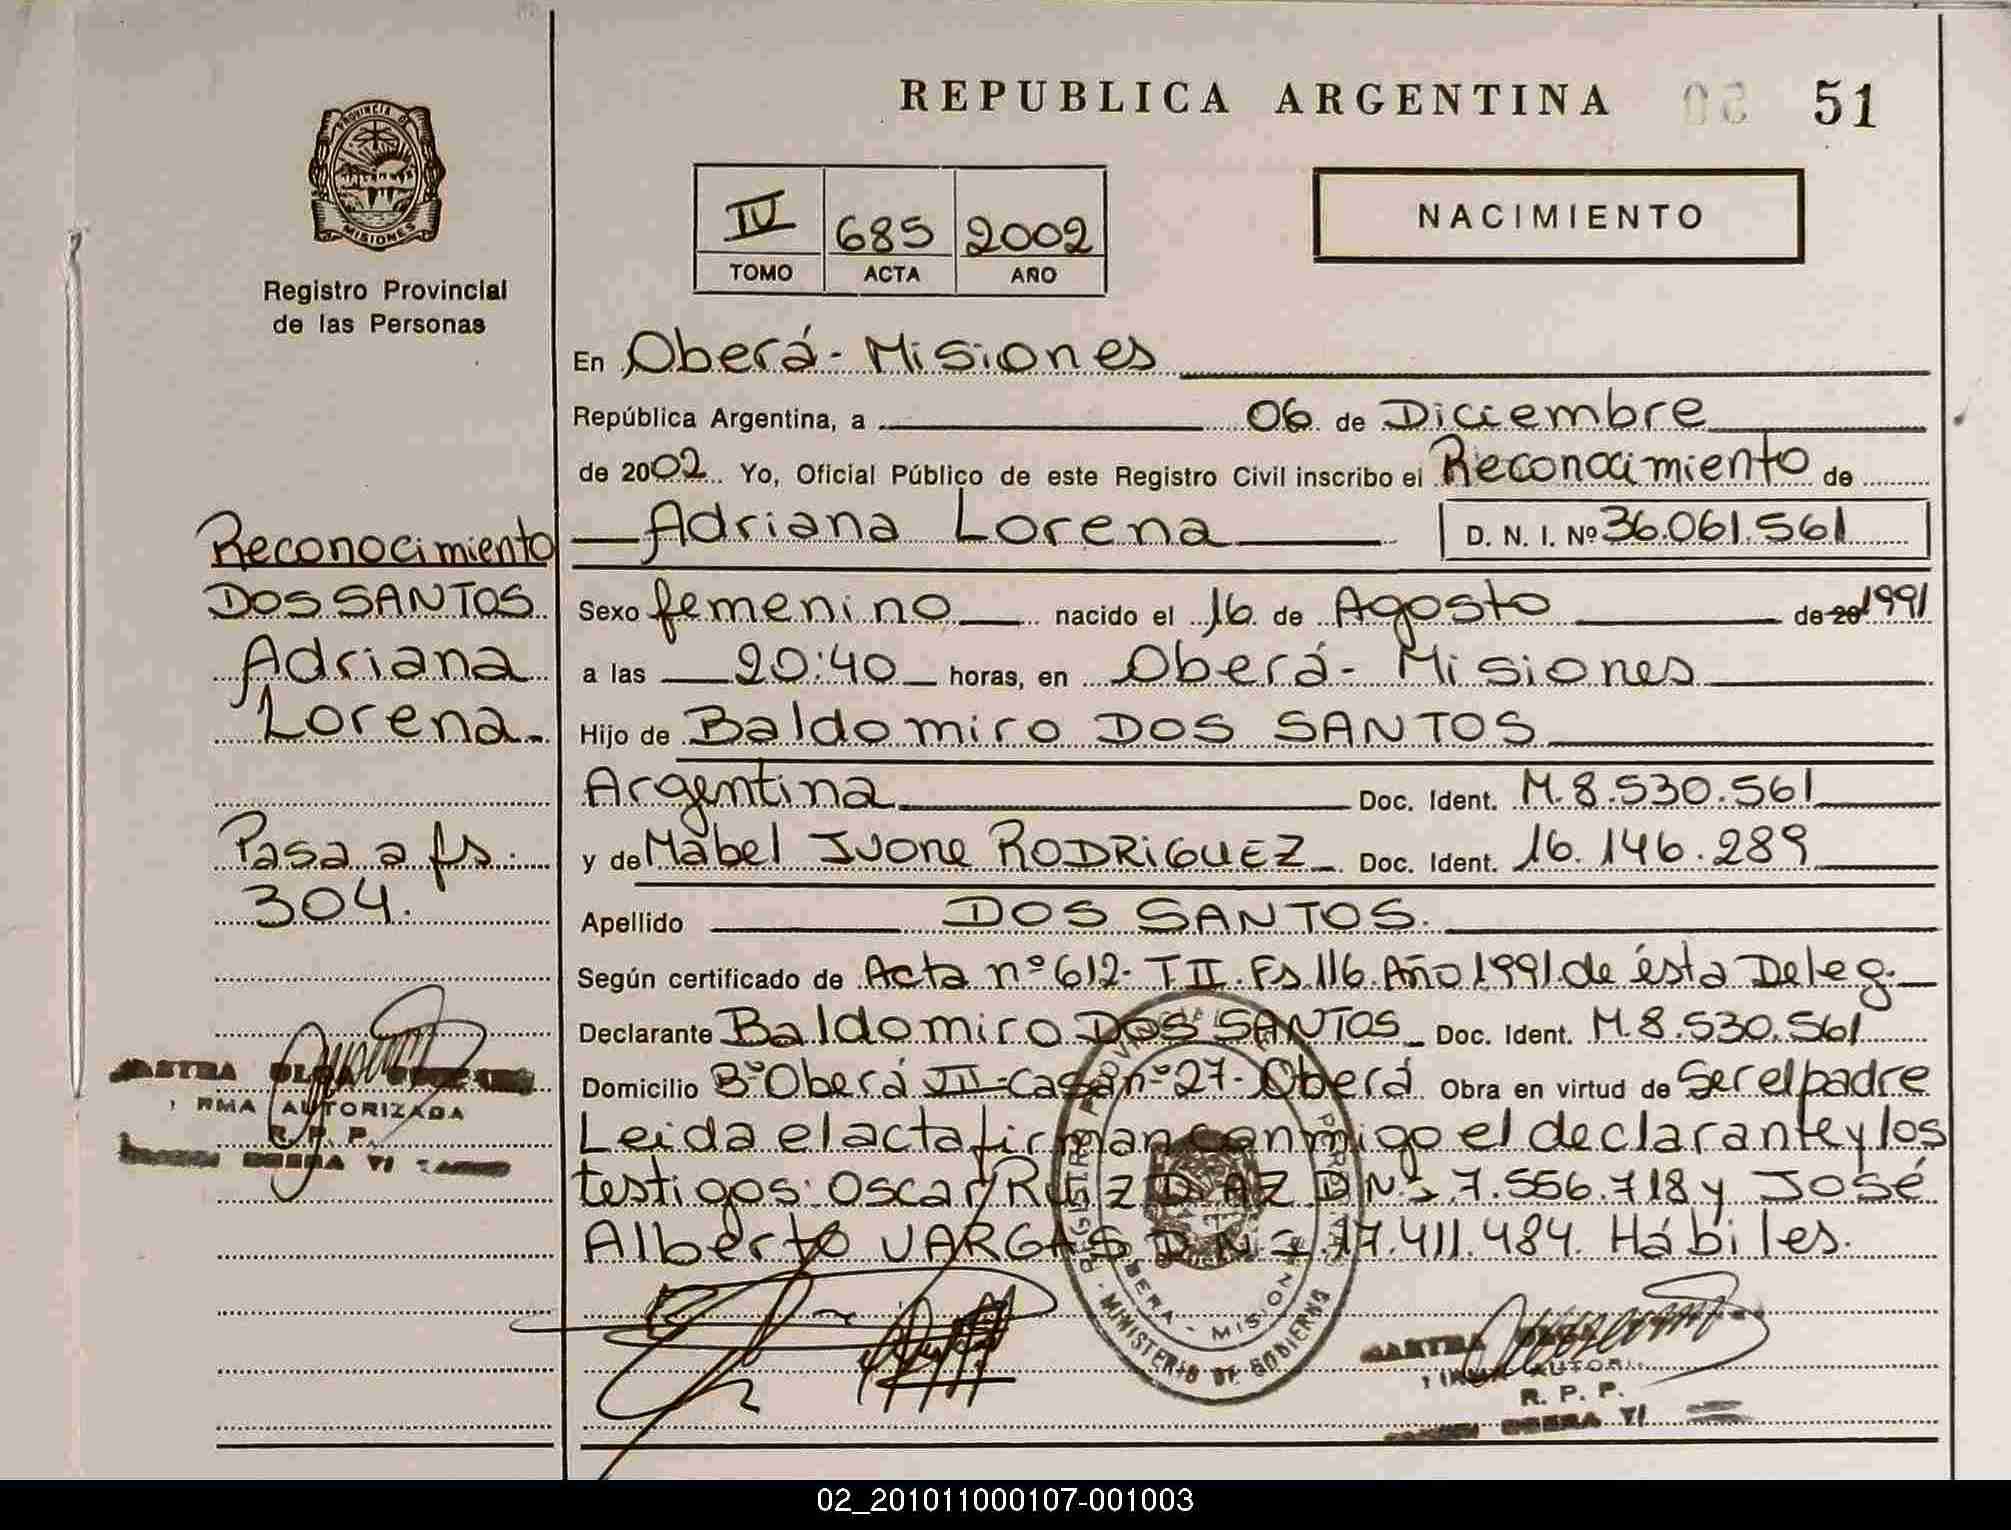 REPUBLICA ARGENTINA 51
PROVINCIA D
MISIONES
Registro Provincial
de las Personas
IV 685 2002
TOMO ACTA AÑO
NACIMIENTO
En Oberá - Misiones
República Argentina, a 06 de Diciembre
de 2002 Yo, Oficial Público de este Registro Civil inscribo el Reconocimiento de
Adriana Lorena D. N. I. Nº 36.061.561
Sexo femenino nacido el 16 de Agosto de 20 1991
a las 20:40 horas, en Oberá - Misiones
Hijo de Baldomiro DOS SANTOS
Argentina Doc. Ident. M. 8.530.561
y de Mabel Ivone RODRIGUEZ Doc. Ident. 16.146.289
Apellido DOS SANTOS.
Según certificado de Acta nº 612- T II. Fs. 116. Año 1991 de ésta Deleg.
Declarante Baldomiro DOS SANTOS Doc. Ident. M. 8.530.561
Domicilio Bº Oberá VII - Casa nº 27 - Oberá Obra en virtud de Ser el padre
Leida el acta firman conmigo el declarante y los
testigos: Oscar RUIZ DIAZ DNI 7.556.718 y José
Alberto VARGAS DNI 17.411.484. Hábiles.
Reconocimiento
DOS SANTOS
Adriana
Lorena.
Pasa a fs.
304.
OLGA
FIRMA AUTORIZADA
R. P. P.
OBERA VI
OBERA - MISIONES
MINISTERIO DE GOBIERNO
R. P. P.
OBERA VI
02_201011000107-001003